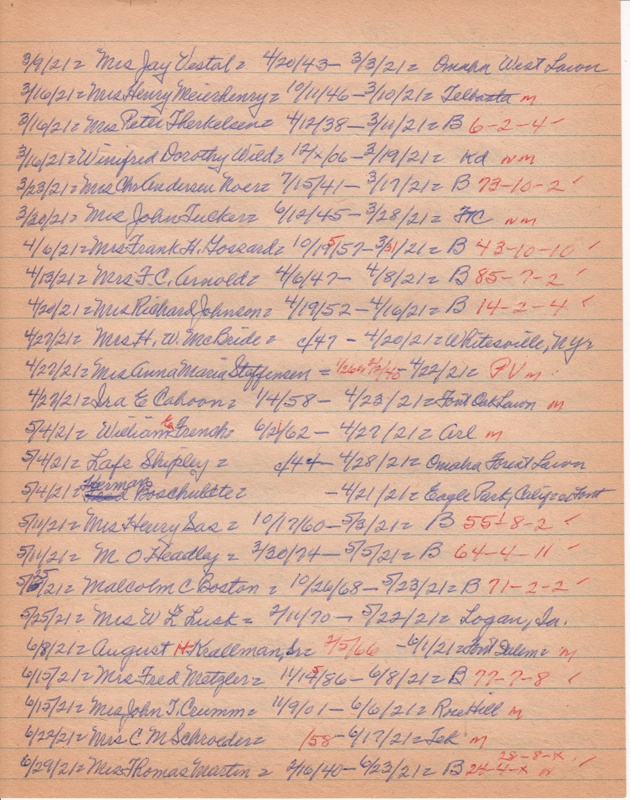 3/9/21 = Mrs Jay Vestal = 4/20/43 - 3/3/21 = Omaha West Lawn
3/16/21 = Mrs Henry Meierhenry = 10/11/46 - 3/10/21 = Telbasta m
3/16/21 = Mrs Peter Therkelsen = 4/12/38 - 3/11/21 = B 6-2-4 ✓
3/16/21 = Winifred Dorothy Wild = 12/x/06 - 3/19/21 = Kd nm
3/23/21 = Mrs Chr Andersen Noer = 7/15/41 - 3/17/21 = B 73-10-2 ✓
3/30/21 = Mrs John Tucker = 6/12/45 - 3/28/21 = FtC nm
4/6/21 = Mrs Frank H. Gossard = 10/195/57 - 3/31/21 = B 43-10-10 ✓
4/13/21 = Mrs F. C. Arnold = 4/6/47 - 4/8/21 = B 85-7-2 ✓
4/20/21 = Mrs Richard Johnson = 4/19/52 - 4/16/21 = B 14-2-4 ✓
4/27/21 = Mrs H. W. McBride = c/47 - 4/20/21 = Whitesville, NYr
4/27/21 = Mrs Anna Maria Steffensen = - 4/22/21 = PV m
4/27/21 = Ira E Cahoon = 1/4/58 - 4/23/21 = Font Oak Lawn m
5/4/21 = William French = 6/21/62 - 4/27/21 = Arl m
5/4/21 = Lafe Shipley = c/44 - 4/28/21 = Omaha Forest Lawn
5/4/21 = Herman Boschulte = - 4/21/21 = Eagle Park, Calif = Font
5/11/21 = Mrs Henry Sas = 10/17/60 - 5/3/21 = B 55-8-2 ✓
5/11/21 = M. O. Headley = 3/30/74 - 5/5/21 = B 64-4-11 ✓
5/25/21 = Malcolm C Boston = 10/26/68 - 5/23/21 = B 71-2-2 ✓
5/25/21 = Mrs W L Lusk = 2/11/70 - 5/22/21 = Logan, Ia.
6/8/21 = August H Keallman, Sr = 2/5/66 - 6/1/21 = Font Salem = m
6/15/21 = Mrs Fred Metzler = 11/145/86 - 6/8/21 = B 77-7-8 ✓
6/15/21 = Mrs John T. Crumm = 11/9/01 - 6/6/21 = Rose Hill m
6/22/21 = Mrs C M Schroeder = /58 - 6/17/21 = Tek m
6/29/21 = Mrs Thomas Martin = 2/16/40 - 6/23/21 = B 24-4-x 28-8-x ✓